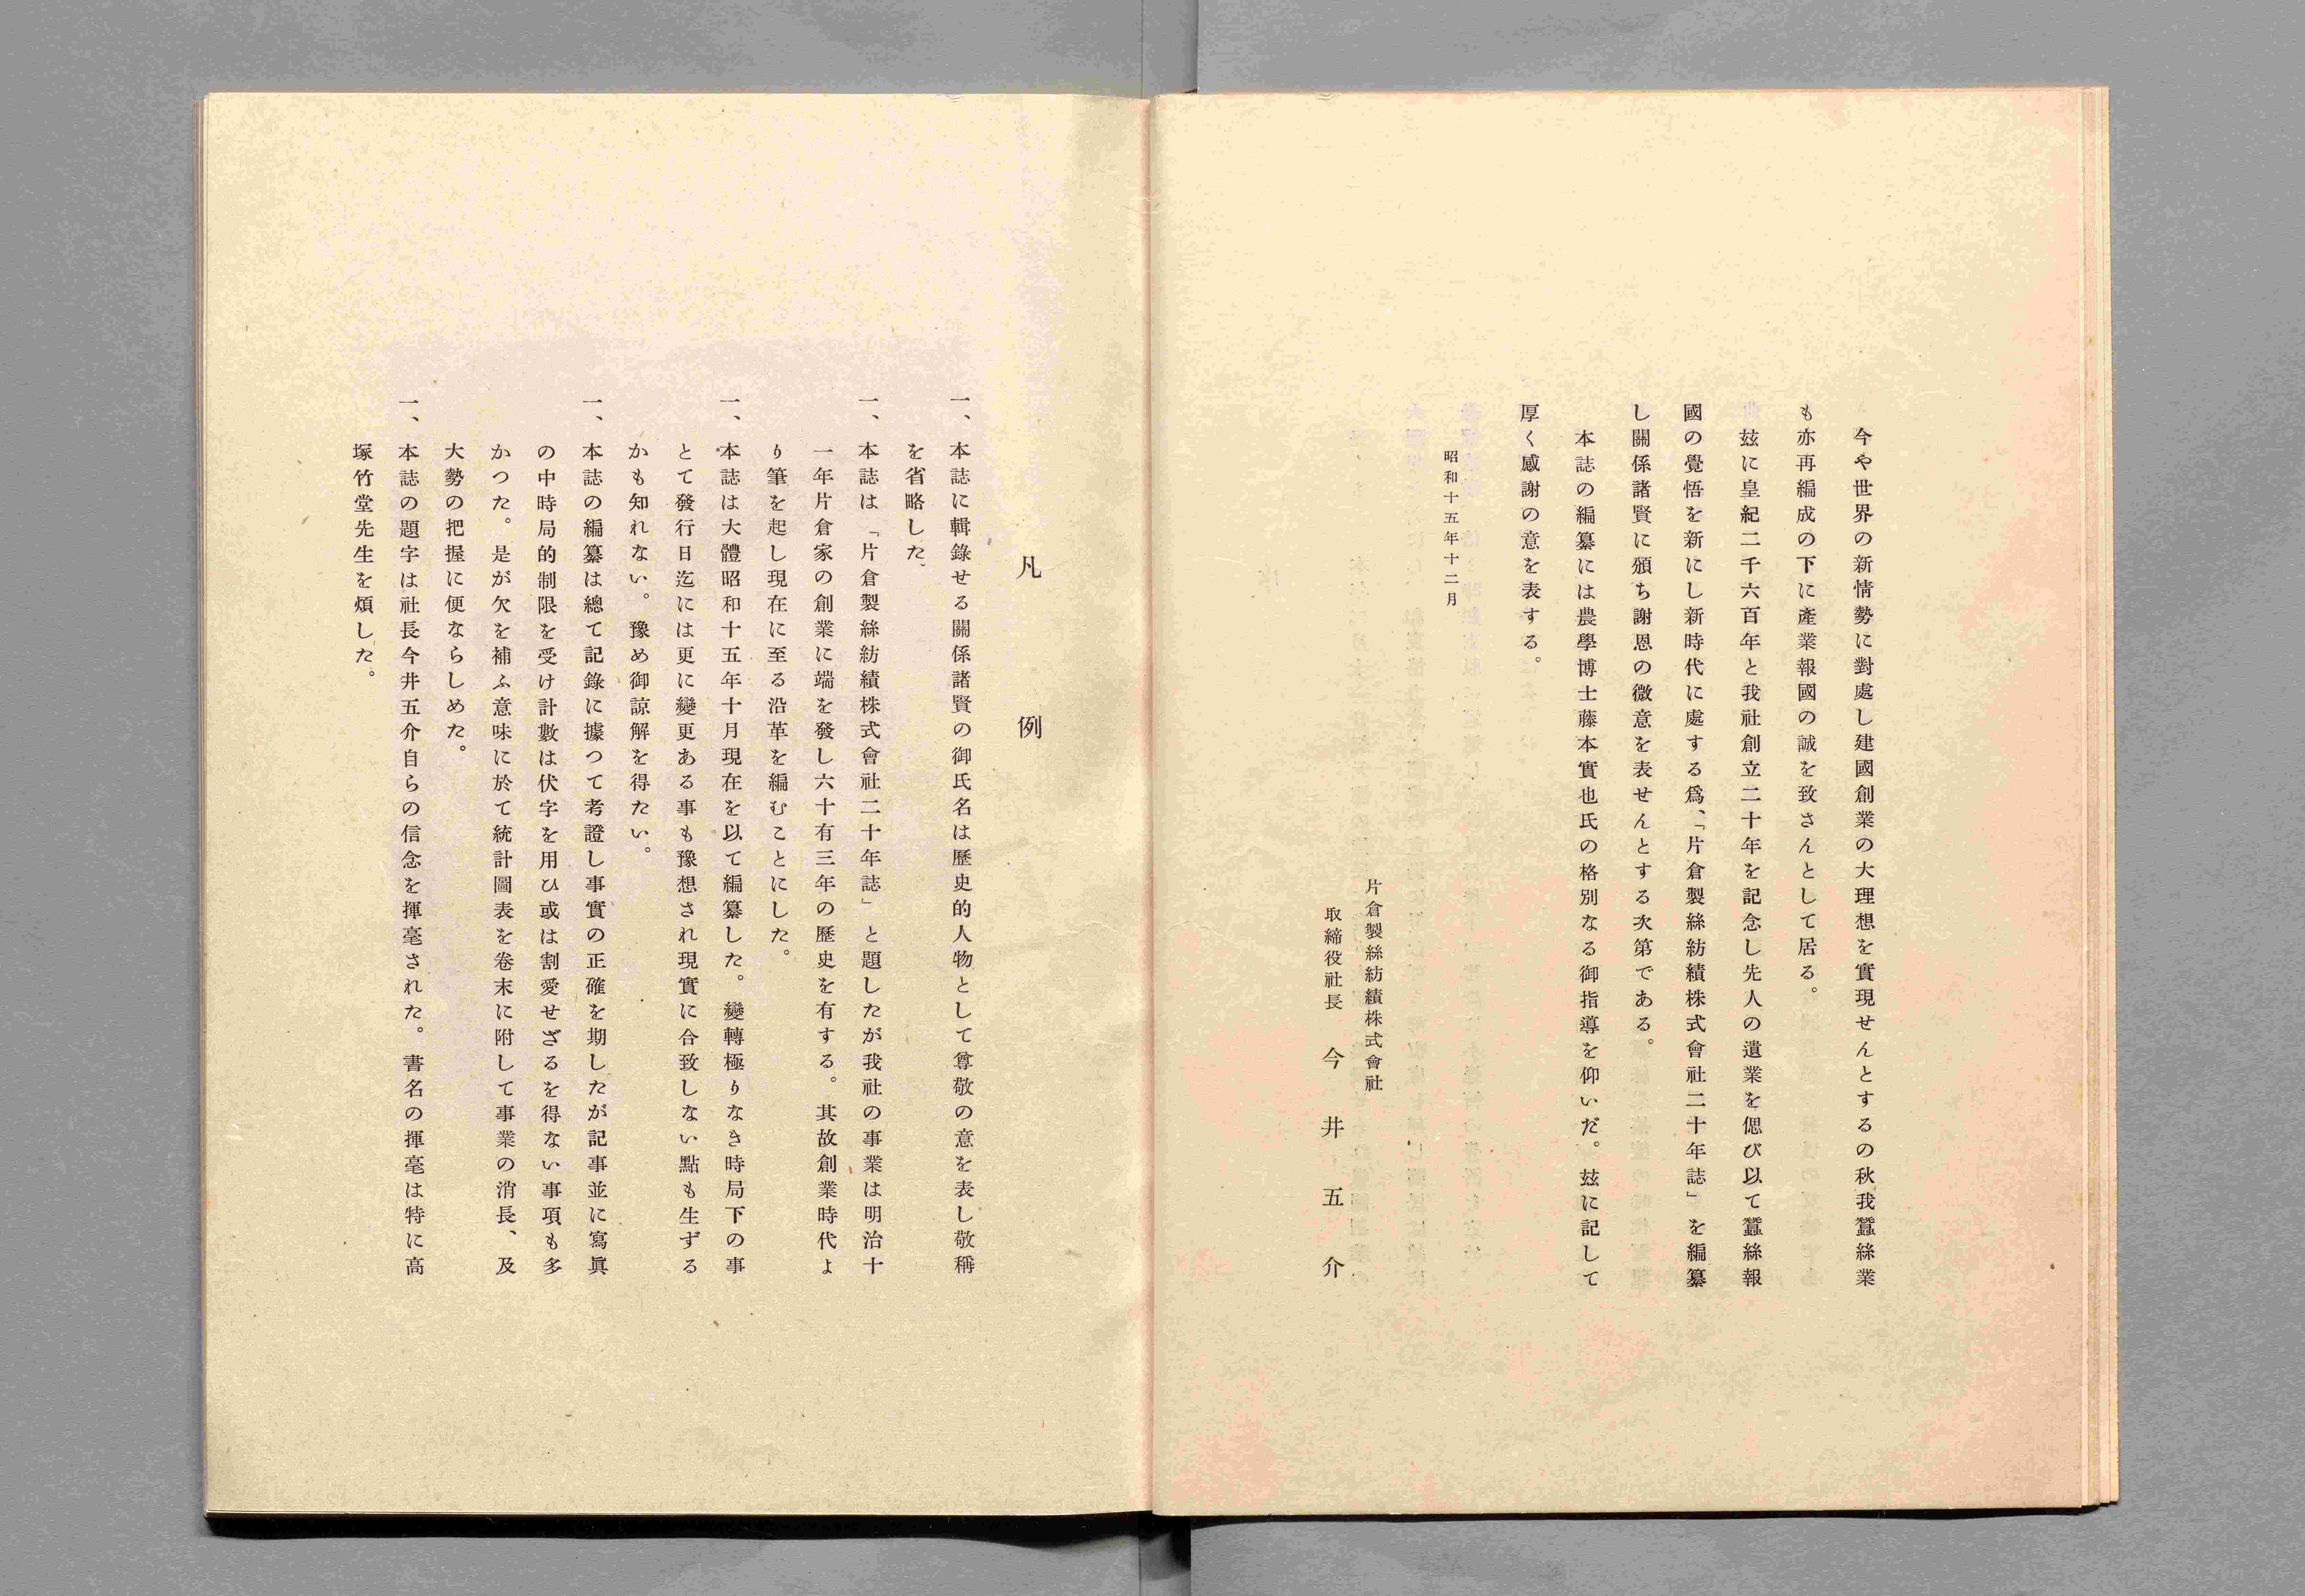 今や世界の新情勢に對處し建國創業の大理想を實現せんとするの秋我蠶絲業
も亦再編成の下に產業報國の誠を致さんとして居る。
玆に皇紀二千六百年と我社創立二十年を記念し先人の遺業を偲び以て蠶絲報
國の覺悟を新にし新時代に處する爲、「片倉製絲紡績株式會社二十年誌」を編纂
し關係諸賢に頒ち謝恩の微意を表せんとする次第である。
本誌の編纂には農學博士藤本實也氏の格別なる御指導を仰いだ。玆に記して
厚く感謝の意を表する。
昭和十五年十二月
片倉製絲紡績株式會社
取締役社長 今井五介
凡例
一、本誌に輯錄せる關係諸賢の御氏名は歷史的人物として尊敬の意を表し敬稱
を省略した、
一、本誌は「片倉製絲紡績株式會社二十年誌」と題したが我社の事業は明治十
一年片倉家の創業に端を發し六十有三年の歷史を有する。其故創業時代よ
り筆を起し現在に至る沿革を編むことにした。
一、本誌は大體昭和十五年十月現在を以て編纂した。變轉極りなき時局下の事
とて發行日迄には更に變更ある事も豫想され現實に合致しない點も生ずる
かも知れない。豫め御諒解を得たい。
一、本誌の編纂は總て記錄に據つて考證し事實の正確を期したが記事並に寫眞
の中時局的制限を受け計數は伏字を用ひ或は割愛せざるを得ない事項も多
かつた。是が欠を補ふ意味に於て統計圖表を卷末に附して事業の消長、及
大勢の把握に便ならしめた。
一、本誌の題字は社長今井五介自らの信念を揮毫された。書名の揮毫は特に高
塚竹堂先生を煩した。